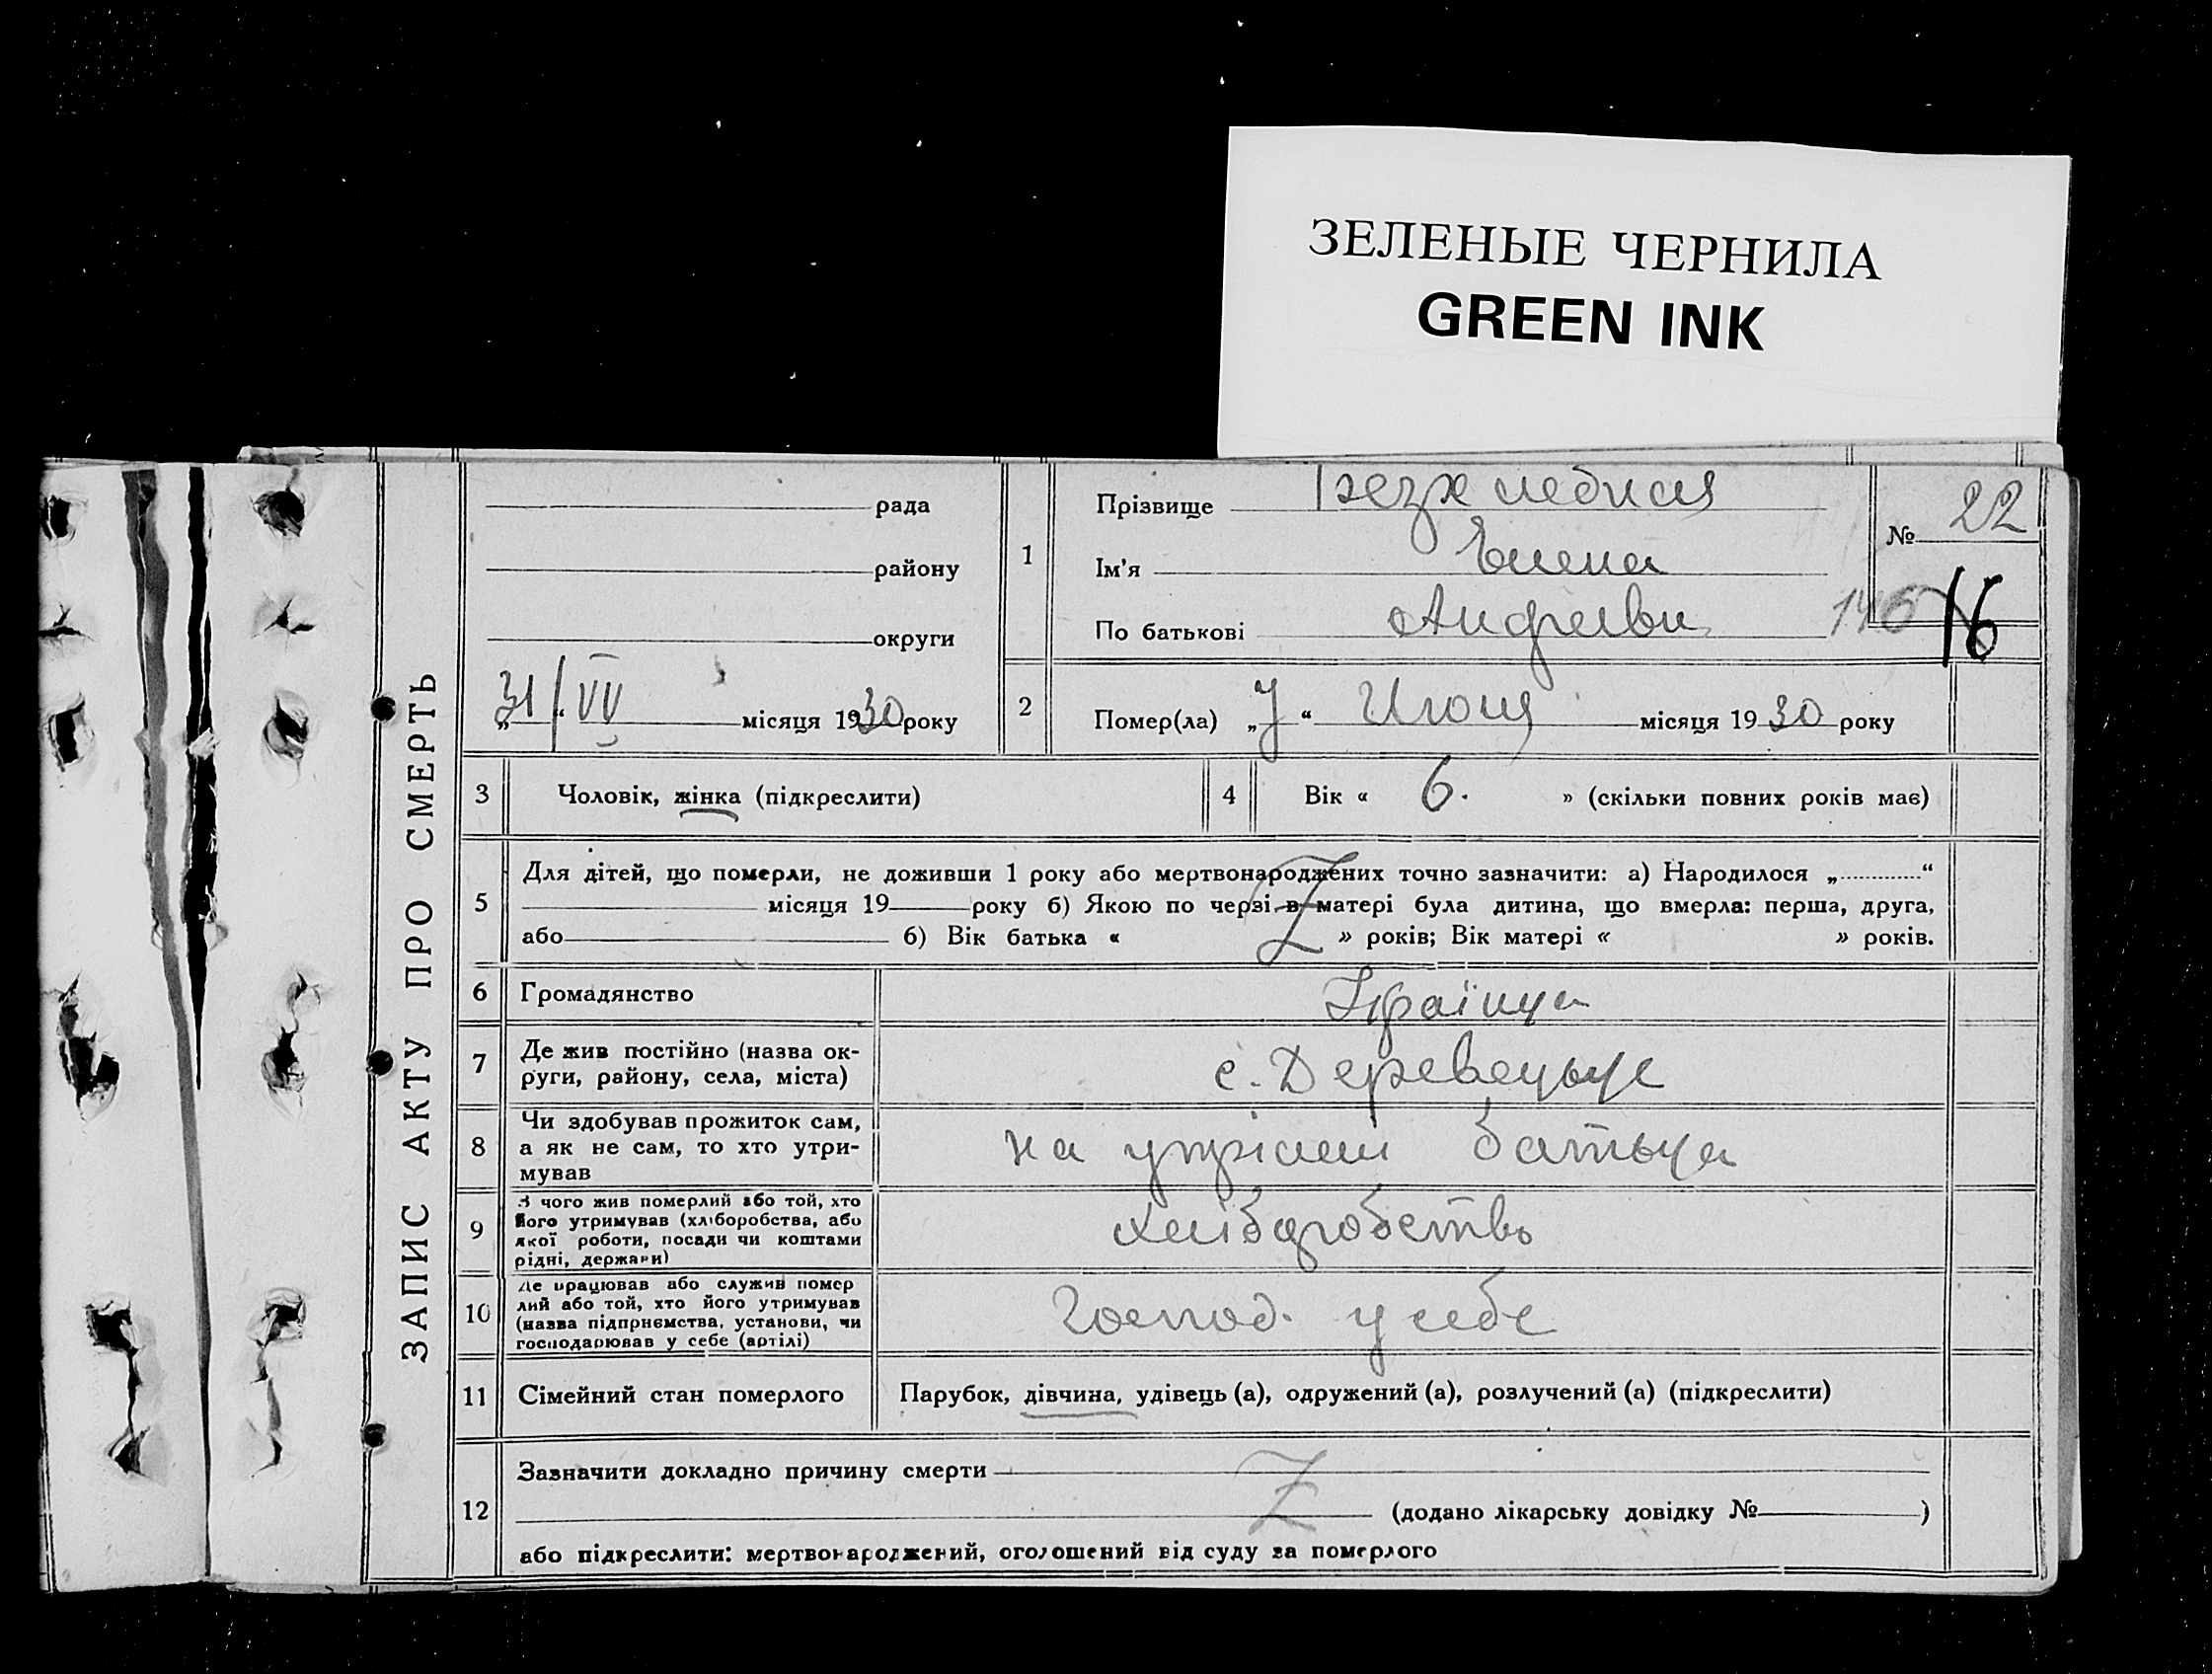 ЗЕЛЕНЫЕ ЧЕРНИЛА
GREEN INK
ЗАПИС АКТУ ПРО СМЕРТЬ
рада
району
округи
„31/VII місяця 1930 року
1
Прізвище Безхлебная
Ім'я Елена
По батькові Андреевн
№ 22
146
16
2
Помер(ла) „ “ місяця 1930 року
3
Чоловік, жінка (підкреслити)
4
Вік « 6. » (скільки повних років має)
5
Для дітей, що померли, не доживши 1 року або мертвонароджених точно зазначити: а) Народилося „ “
місяця 19 року б) Якою по черзі в матері була дитина, що вмерла: перша, друга,
або б) Вік батька « » років; Вік матері « » років.
6
Громадянство
Українца
7
Де жив постійно (назва ок-
руги, району, села, міста)
с.
8
Чи здобував прожиток сам,
а як не сам, то хто утри-
мував
на батька
9
З чого жив померлий або той, хто
його утримував (хліборобства, або
якої роботи, посади чи коштами
рідні, держави)
хліборобство
10
Де працював або служив помер
лий або той, хто його утримував
(назва підприємства, установи, чи
господарював у себе (артілі)
Господ. у себе
11
Сімейний стан померлого
Парубок, дівчина, удівець (а), одружений (а), розлучений (а) (підкреслити)
12
Зазначити докладно причину смерти
(додано лікарську довідку № )
або підкреслити: мертвонароджений, оголошений від суду за померлого